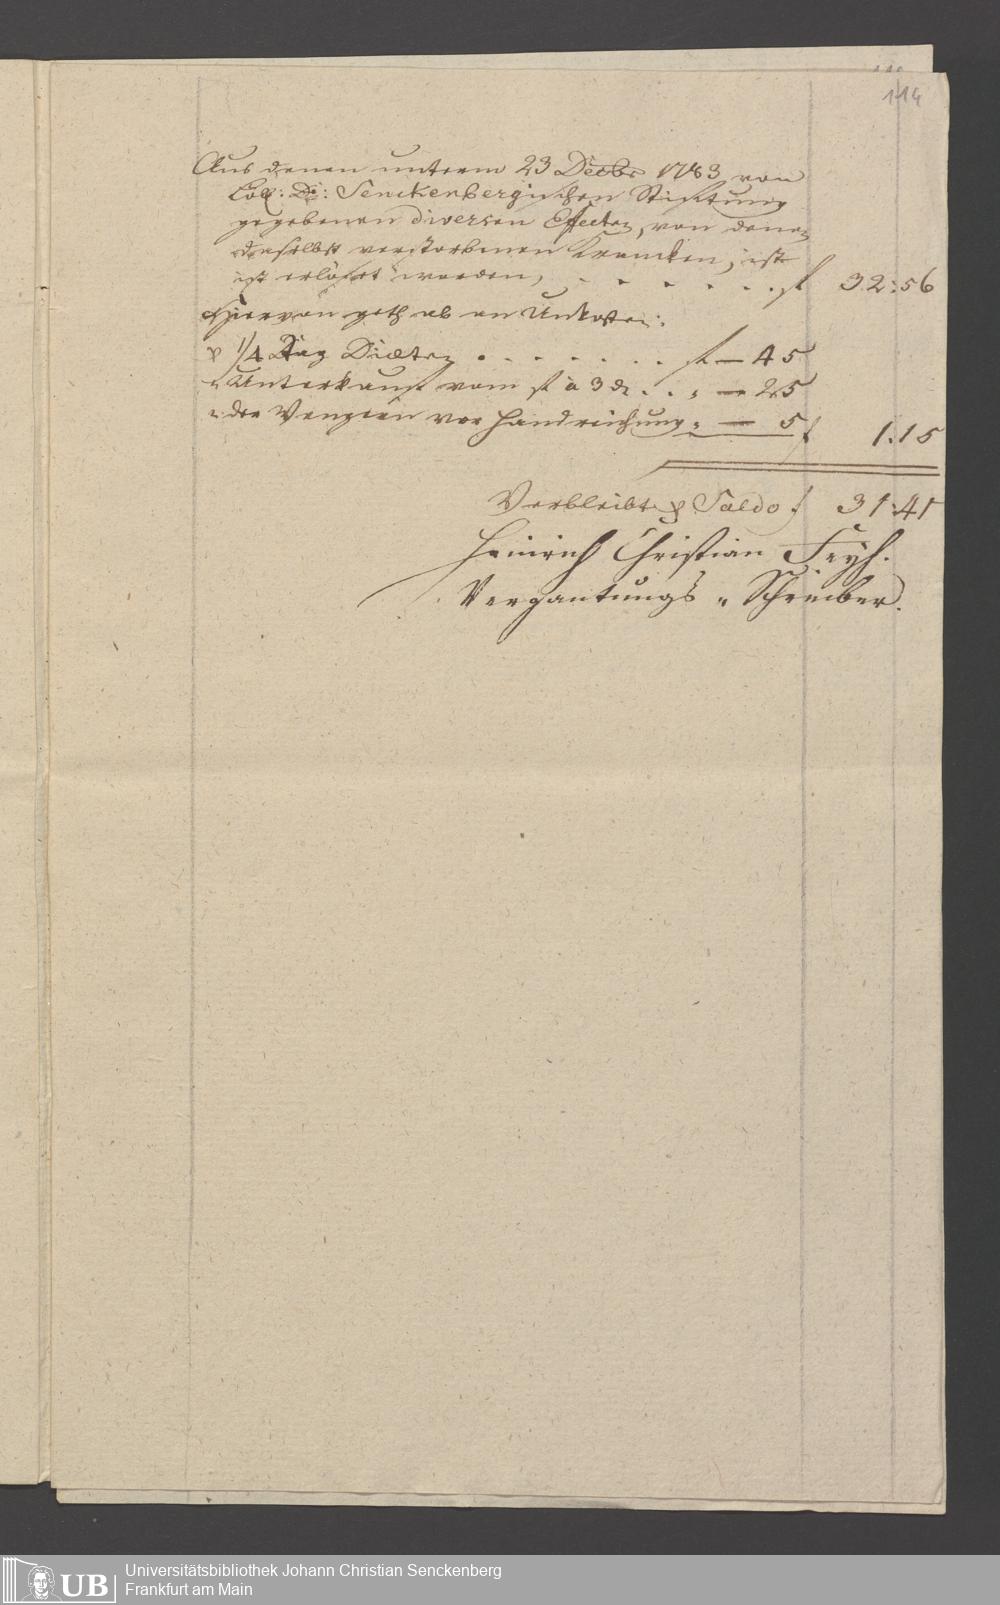 114
Aus denen unterm 23 Decbr 1783 von
Löbl: Dr: Senckenbergischen Stiftung
gegebenen diversen Effecten, von denen
daselbst verstorbenen Krancken, ist
ist erlößet worden, . . . . . . . fl 32:56
Hiervon geth ab an Unkosten:
p 1/4 Tag Diæten . . . . . . . fl — 45
" Unterkauf vom fl à 3 d . . " — 25
" der Vengern vor Handreichung " — 5 f 1:15
Verbleibt p Saldo f 31:41
Heinrich Christian Feyh.
Vergantungs " Schreiber.
UB
Universitätsbibliothek Johann Christian Senckenberg
Frankfurt am Main